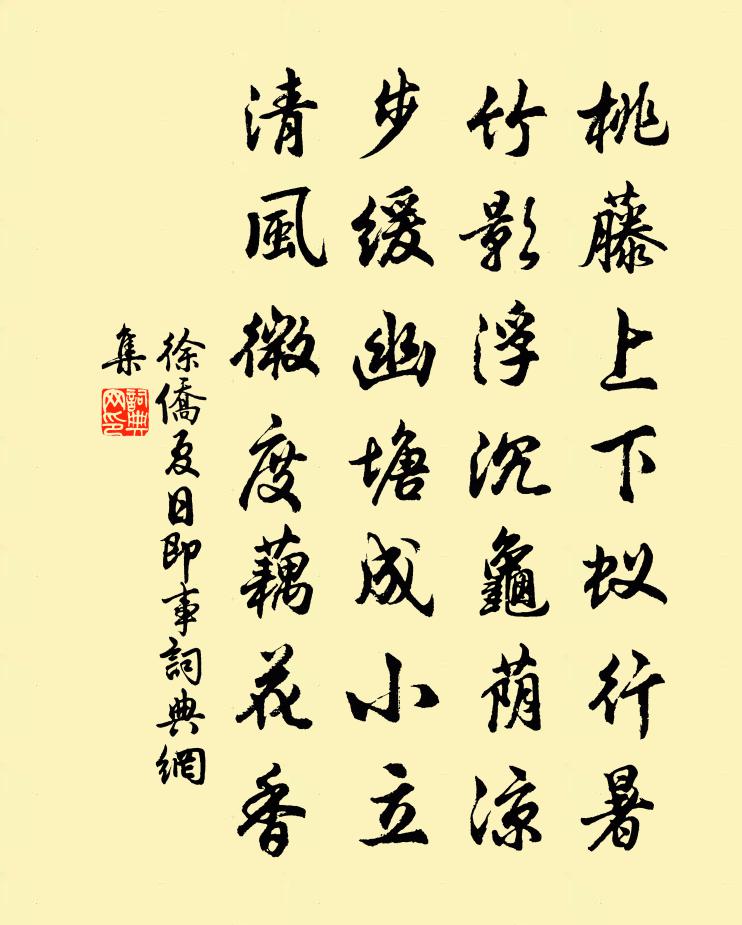 桃藤上下蚁行暑
竹影浮沉龜荫涼
步緩幽塘成小立
清風微度藕花香
徐僑夏日即事詞典網
集
詞典
网印